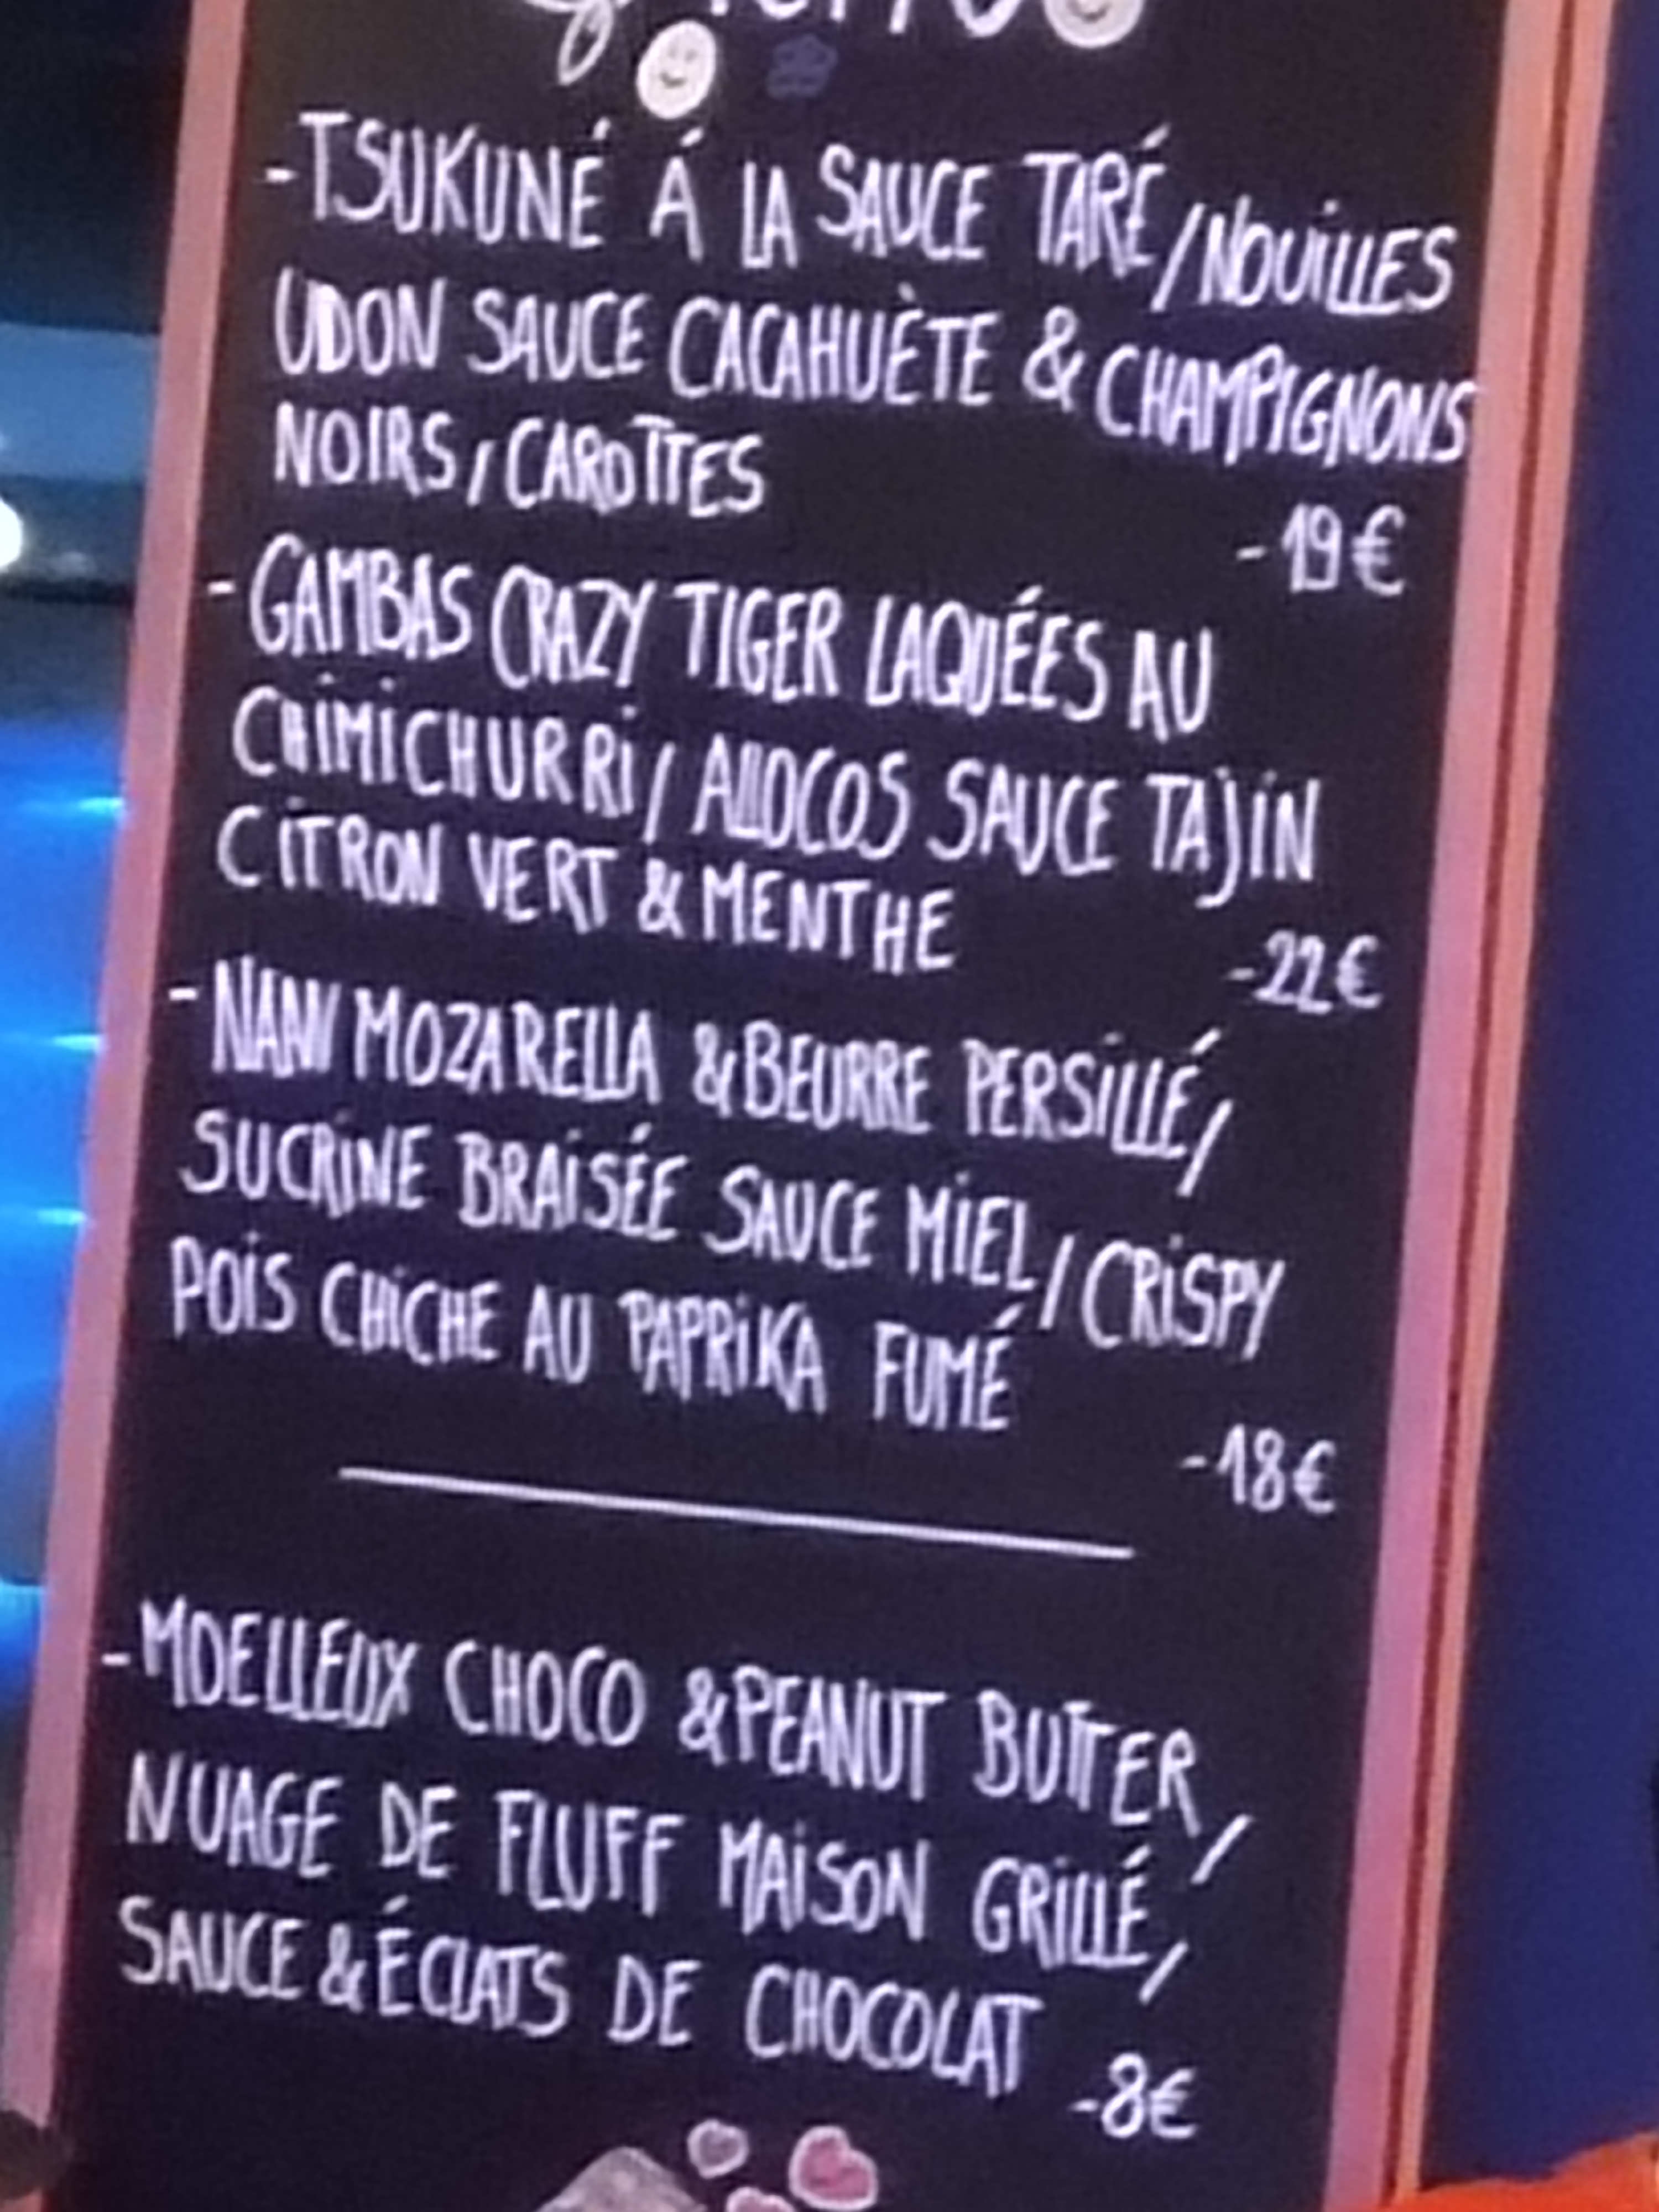 -TSUKUNÉ Á LA SAUCE TARÉ/NOUILLES
UDON SAUCE CACAHUÈTE & CHAMPIGNONS
NOIRS/CAROTTES
-19€
-GAMBAS CRAZY TIGER LAQUÉES AU
CHIMICHURRI/ALLOCOS SAUCE TAJIN
CITRON VERT & MENTHE
-22€
-NAN MOZARELLA & BEURRE PERSILLÉ/
SUCRINE BRAISÉE SAUCE MIEL/CRISPY
POIS CHICHE AU PAPRIKA FUMÉ
-18€
-MOELLEUX CHOCO & PEANUT BUTTER,
NUAGE DE FLUFF MAISON GRILLÉ,
SAUCE & ÉCLATS DE CHOCOLAT
-8€